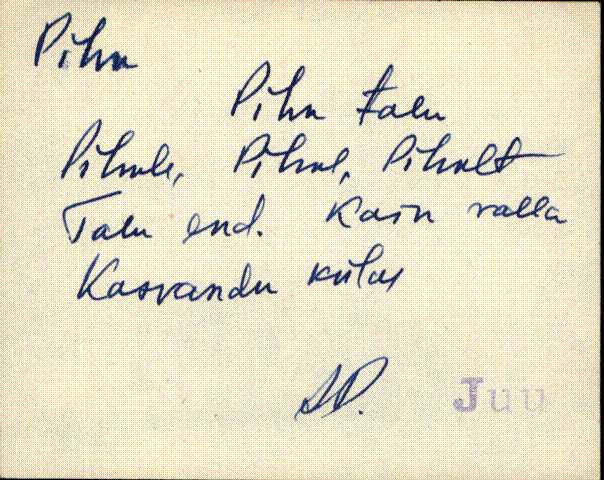 Piha
Piha talu
Pihale, Pihal, Pihalt
Talu end. Kaiu valla
Kasvandu külas
Juu